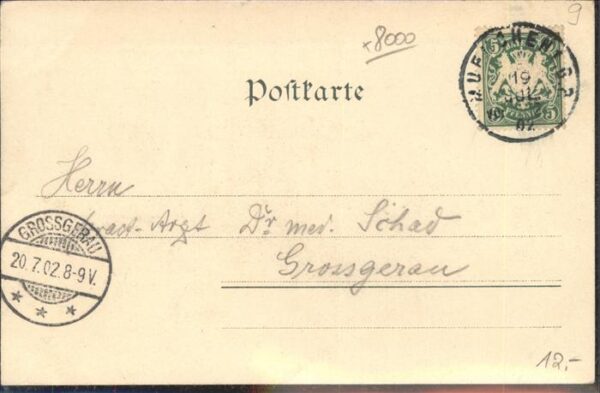 9
x8000
MUENCHEN I.B.2
19
JUL
02
5
5
Postkarte
Herrn
Arzt Dr. med. Schad
Grossgerau
GROSSGERAU
20.7.02.8-9V.
* * *
12.-